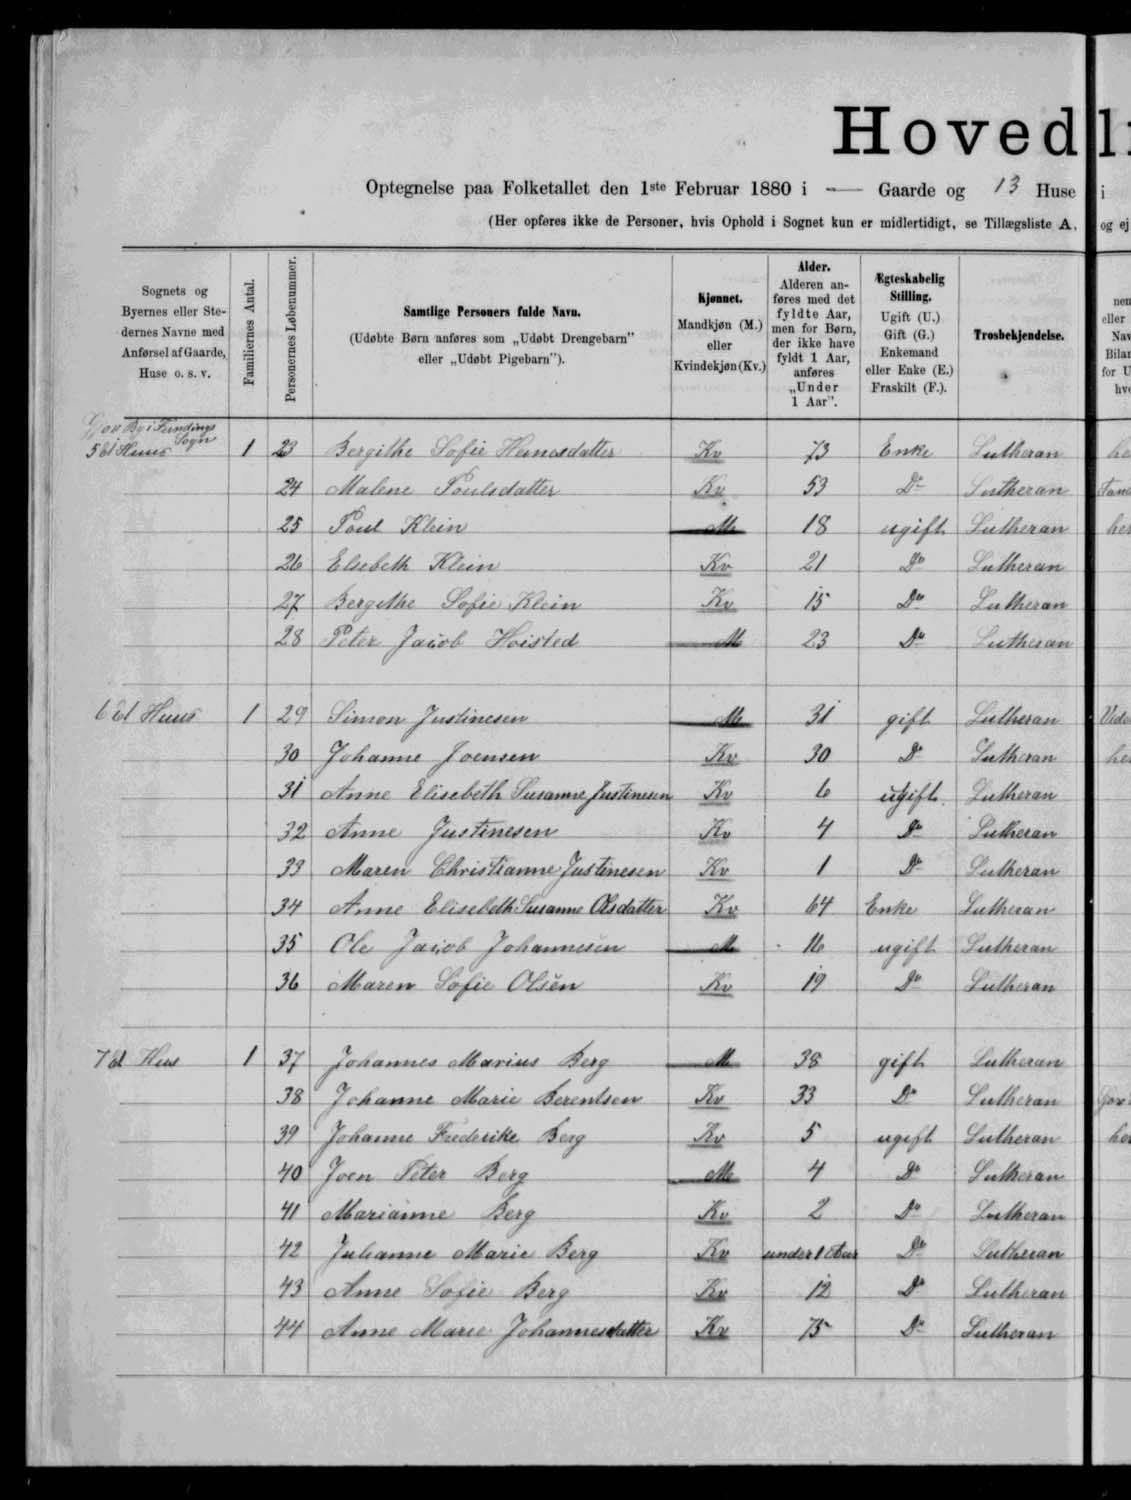 Hovedli
Optegnelse paa Folketallet den 1ste Februar 1880 i — Gaarde og 13 Huse i
(Her opføres ikke de Personer, hvis Ophold i Sognet kun er midlertidigt, se Tillægsliste A, og ej
Sognets og Byernes eller Stedernes Navne med Anførsel af Gaarde, Huse o. s. v.
Familiernes Antal.
Personernes Løbenummer.
Samtlige Personers fulde Navn.
(Udøbte Børn anføres som „Udøbt Drengebarn" eller „Udøbt Pigebarn").
Kjønnet.
Mandkjøn (M.) eller Kvindekjøn (Kv.)
Alder.
Alderen anføres med det fyldte Aar, men for Børn, der ikke have fyldt 1 Aar, anføres „Under 1 Aar".
Ægteskabelig Stilling.
Ugift (U.) Gift (G.) Enkemand eller Enke (E.) Fraskilt (F.).
Trosbekjendelse.
Gjov By i Fundings Sogn
5 Et Huus 1 23 Bergithe Sofie Hemesdatter Kv 73 Enke Lutheran he
24 Malene Poulsdatter Kv 53 Do Lutheran
25 Poul Klein M 18 ugift Lutheran her
26 Elsebeth Klein Kv 21 Do Lutheran
27 Bergithe Sofie Klein Kv 15 Do Lutheran
28 Peter Jacob Hoisted M 23 Do Lutheran
6 Et Huus 1 29 Simon Justinesen M 31 gift Lutheran Vide
30 Johanne Joensen Kv 30 Do Lutheran he
31 Anne Elisebeth Susanne Justinesen Kv 6 ugift Lutheran
32 Anne Justinesen Kv 4 Do Lutheran
33 Maren Christianne Justinesen Kv 1 Do Lutheran
34 Anne Elisebeth Susanne Olsdatter Kv 64 Enke Lutheran
35 Ole Jacob Johannesen M 16 ugift Lutheran
36 Maren Sofie Olsen Kv 19 Do Lutheran
7 Et Hus 1 37 Johannes Marius Berg M 38 gift Lutheran
38 Johanne Marie Berentsen Kv 33 Do Lutheran
39 Johanne Frederike Berg Kv 5 ugift Lutheran he
40 Joen Peter Berg M 4 Do Lutheran
41 Marianne Berg Kv 2 Do Lutheran
42 Julianne Marie Berg Kv under 1 Aar Do Lutheran
43 Anne Sofie Berg Kv 12 Do Lutheran
44 Anne Marie Johannesdatter Kv 75 Do Lutheran